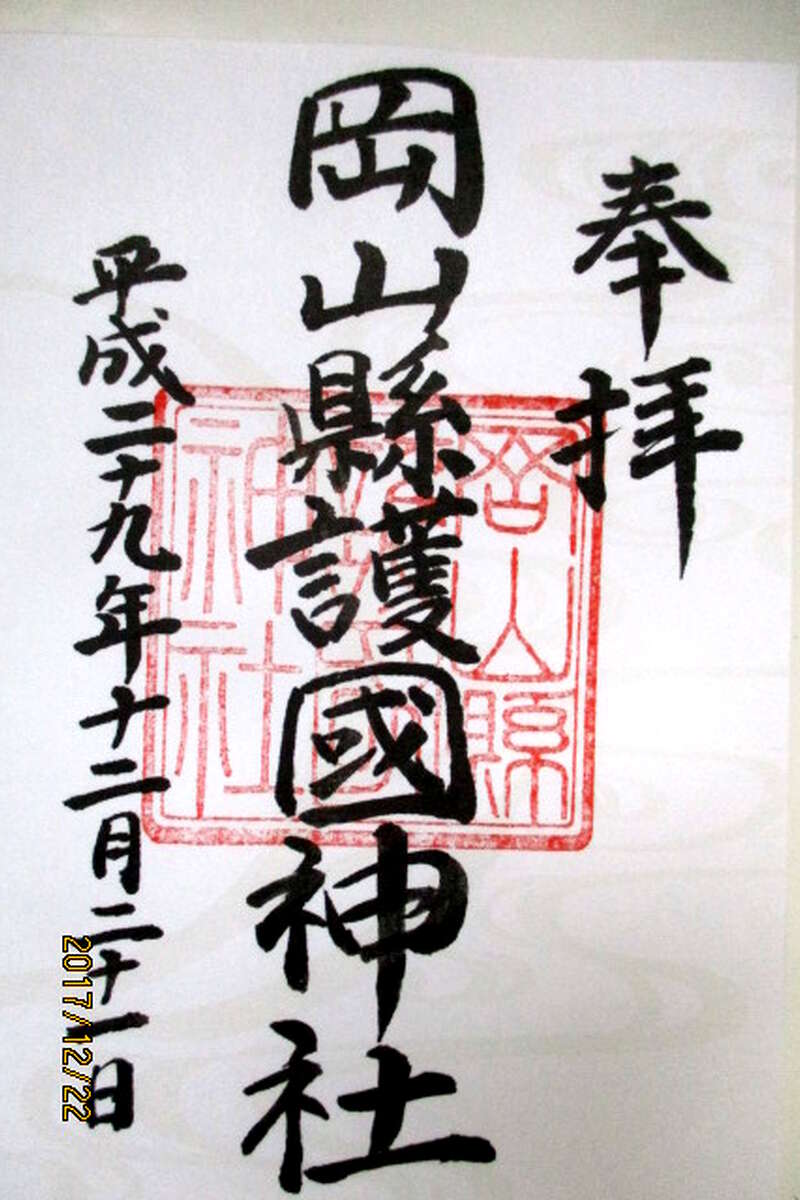 奉拝
岡山縣護國神社
岡山縣
護國
神社
平成二十九年十二月二十一日
2017/12/22